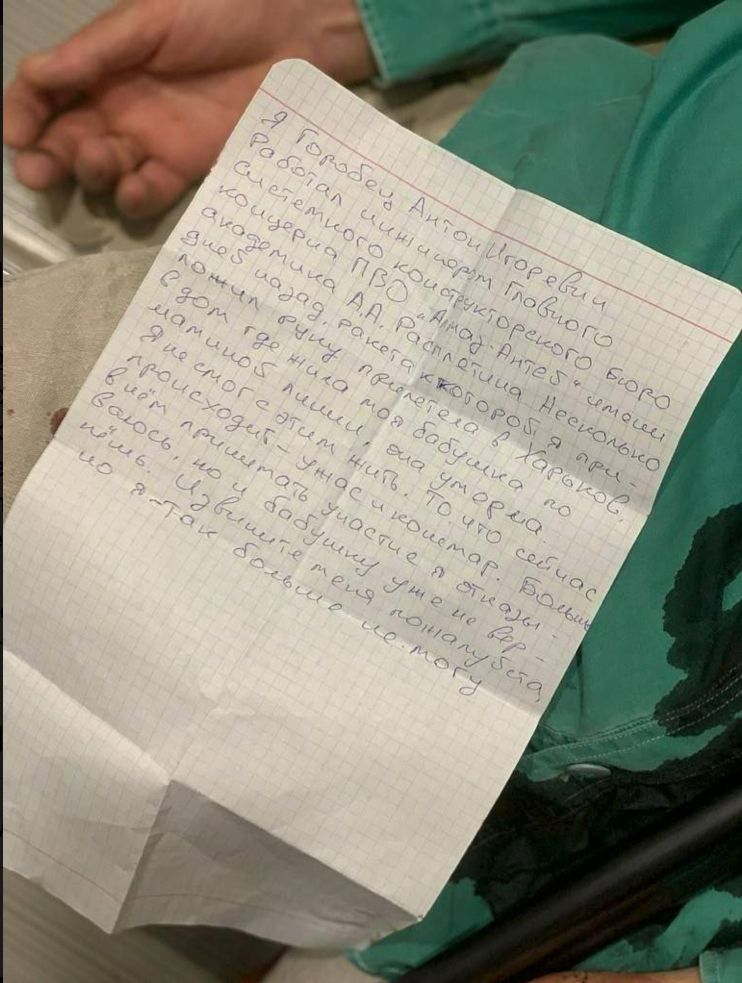 Я Горобец Антон Игоревич
Работал инженером Главного
системного конструкторского Бюро
концерна ПВО „Алмаз-Антей“ имени
академика А.А. Расплетина Несколько
дней назад, ракета к которой я при-
ложил руку прилетела в Харьков,
в дом где жила моя бабушка по
маминой линии, она умерла.
Я не смог с этим жить. То что сейчас
происходит – ужас и кошмар. Больше
в нём принимать участие я отказы-
ваюсь, но и бабушку уже не вер-
нёшь. Извините меня пожалуйста,
но я так больше не могу